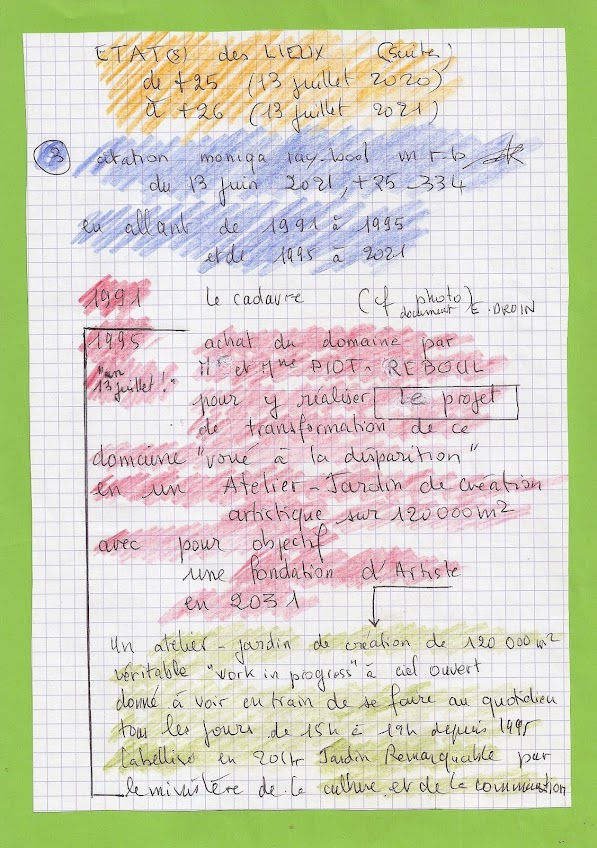 ETAT(s) des LIEUX (suites)
de +25 (13 juillet 2020)
à +26 (13 juillet 2021)
3 citation moniqa ray-bool m r-b
du 13 juin 2021, +25 -334
en allant de 1991 à 1995
et de 1995 à 2021
1991 le cadavre (cf photo)
document E. DROIN
1995 achat du domaine par
"un Mr et Mme PIOT-REBOUL
13 juillet!" pour y réaliser le projet
de transformation de ce
domaine "voué à la disparition"
en un Atelier-Jardin de création
artistique sur 120000 m2
avec pour objectif
une fondation d'Artiste
en 2031
Un atelier-jardin de création de 120 000 m2
véritable "work in progress" à ciel ouvert
donné à voir en train de se faire au quotidien
tous les jours de 15h à 19h depuis 1995
labellisé en Jardin Remarquable par
le ministère de la culture et de la communication